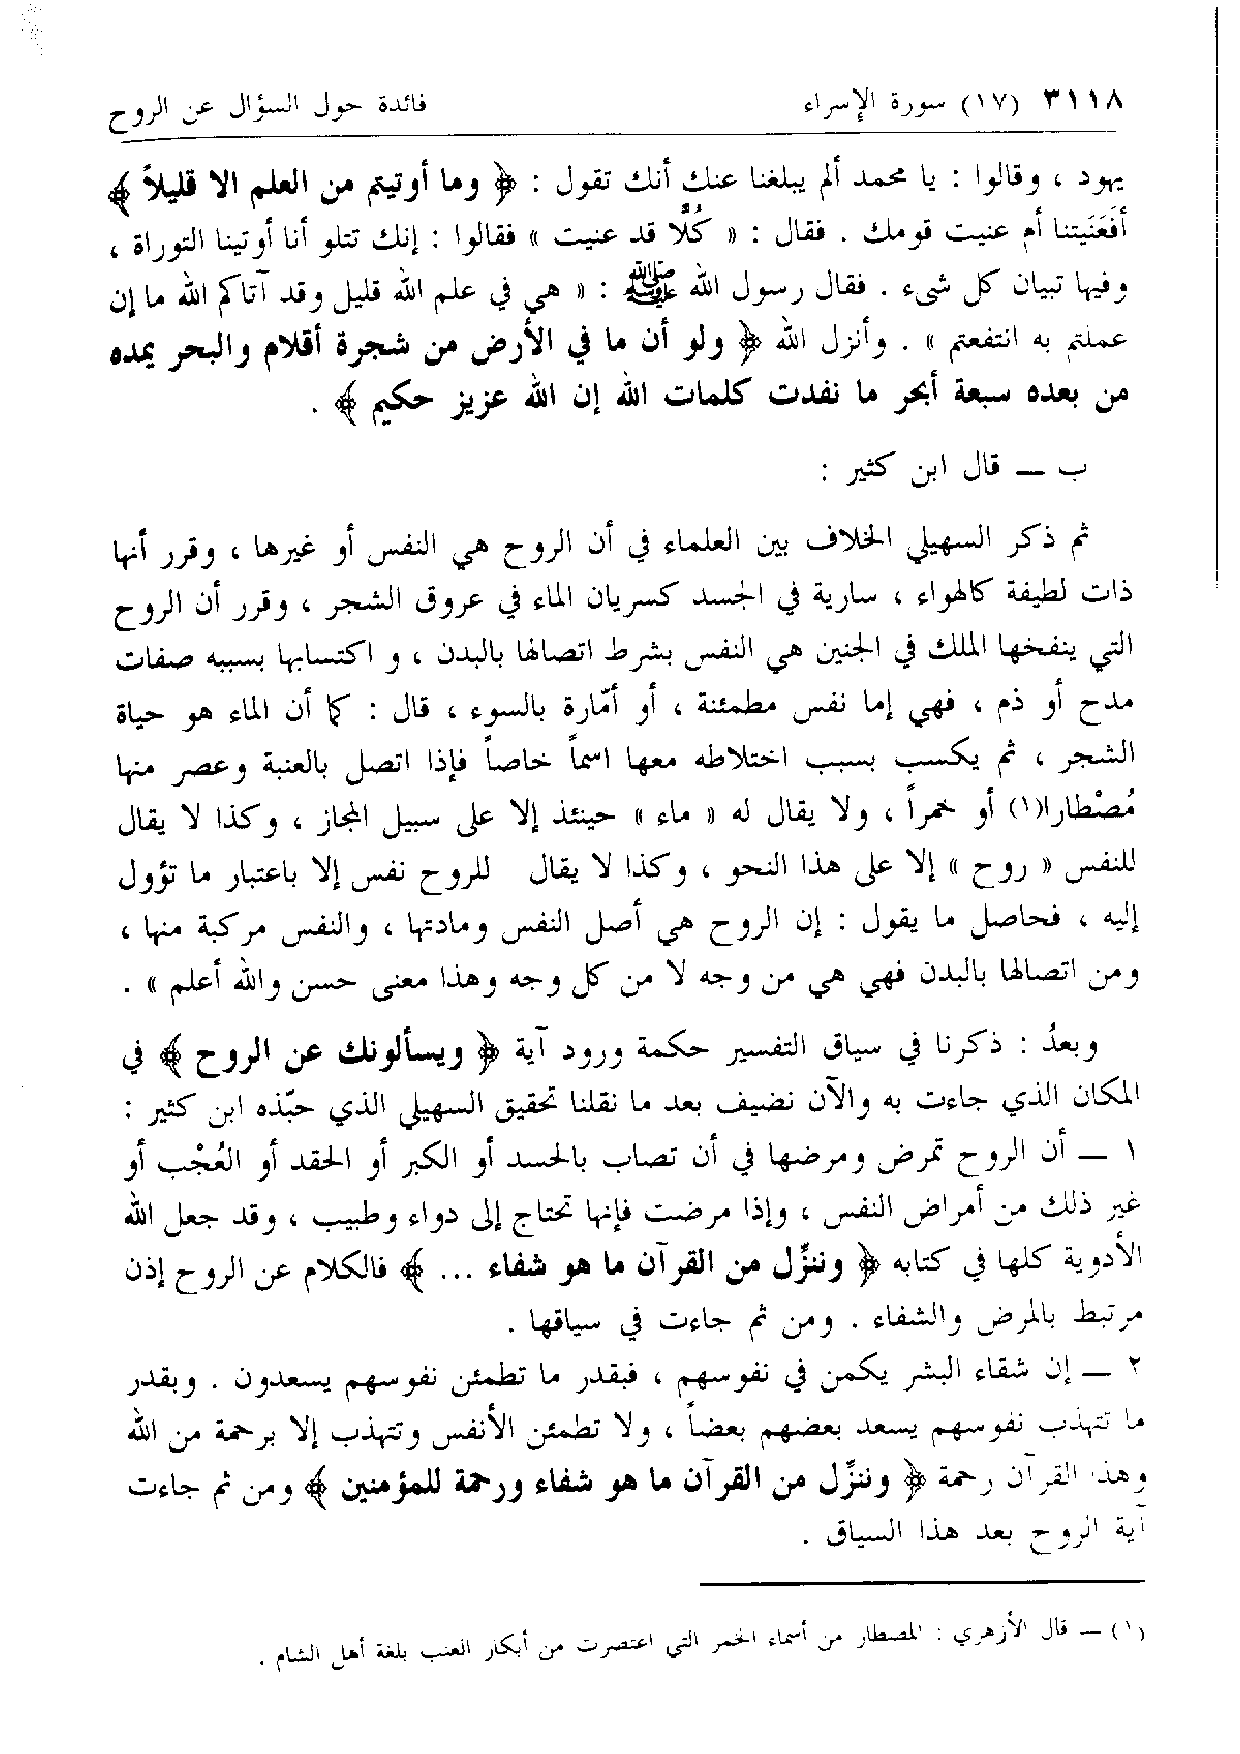 ٣١١٨ (١٧) سورة الإسراء فائدة حول السؤال عن الروح
يهود ، وقالوا : يا محمد ألم يبلغنا عنك أنك تقول : ﴿ وما أوتيتم من العلم الا قليلاً ﴾
أفَعَنَيتنا أم عنيت قومك . فقال : « كُلًّا قد عنيت » فقالوا : إنك تتلو أنا أوتينا التوراة ،
وفيها تبيان كل شيء . فقال رسول الله ﷺ : « هي في علم الله قليل وقد آتاكم الله ما إن
عملتم به انتفعتم » . وأنزل الله ﴿ ولو أن ما في الأرض من شجرة أقلام والبحر يمده
من بعده سبعة أبحر ما نفدت كلمات الله إن الله عزيز حكيم ﴾ .
ب — قال ابن كثير :
ثم ذكر السهيلي الخلاف بين العلماء في أن الروح هي النفس أو غيرها ، وقرر أنها
ذات لطيفة كالهواء ، سارية في الجسد كسريان الماء في عروق الشجر ، وقرر أن الروح
التي ينفخها الملك في الجنين هي النفس بشرط اتصالها بالبدن ، و اكتسابها بسببه صفات
مدح أو ذم ، فهي إما نفس مطمئنة ، أو أمّارة بالسوء ، قال : كما أن الماء هو حياة
الشجر ، ثم يكسب بسبب اختلاطه معها اسماً خاصاً فإذا اتصل بالعنبة وعصر منها
مُصْطارا(١) أو خمراً ، ولا يقال له « ماء » حينئذ إلا على سبيل المجاز ، وكذا لا يقال
للنفس « روح » إلا على هذا النحو ، وكذا لا يقال للروح نفس إلا باعتبار ما تؤول
إليه ، فحاصل ما يقول : إن الروح هي أصل النفس ومادتها ، والنفس مركبة منها ،
ومن اتصالها بالبدن فهي هي من وجه لا من كل وجه وهذا معنى حسن والله أعلم » .
وبعدُ : ذكرنا في سياق التفسير حكمة ورود آية ﴿ ويسألونك عن الروح ﴾ في
المكان الذي جاءت به والآن نضيف بعد ما نقلنا تحقيق السهيلي الذي حبّذه ابن كثير :
١ — أن الروح تمرض ومرضها في أن تصاب بالحسد أو الكبر أو الحقد أو العُجْب أو
غير ذلك من أمراض النفس ، وإذا مرضت فإنها تحتاج إلى دواء وطبيب ، وقد جعل الله
الأدوية كلها في كتابه ﴿ وننزِّل من القرآن ما هو شفاء ... ﴾ فالكلام عن الروح إذن
مرتبط بالمرض والشفاء . ومن ثم جاءت في سياقها .
٢ — إن شقاء البشر يكمن في نفوسهم ، فبقدر ما تطمئن نفوسهم يسعدون . وبقدر
ما تتهذب نفوسهم يسعد بعضهم بعضاً ، ولا تطمئن الأنفس وتتهذب إلا برحمة من الله
وهذا القرآن رحمة ﴿ وننزِّل من القرآن ما هو شفاء ورحمة للمؤمنين ﴾ ومن ثم جاءت
آية الروح بعد هذا السياق .
(١) — قال الأزهري : المصطار من أسماء الخمر التي اعتصرت من أبكار العنب بلغة أهل الشام .